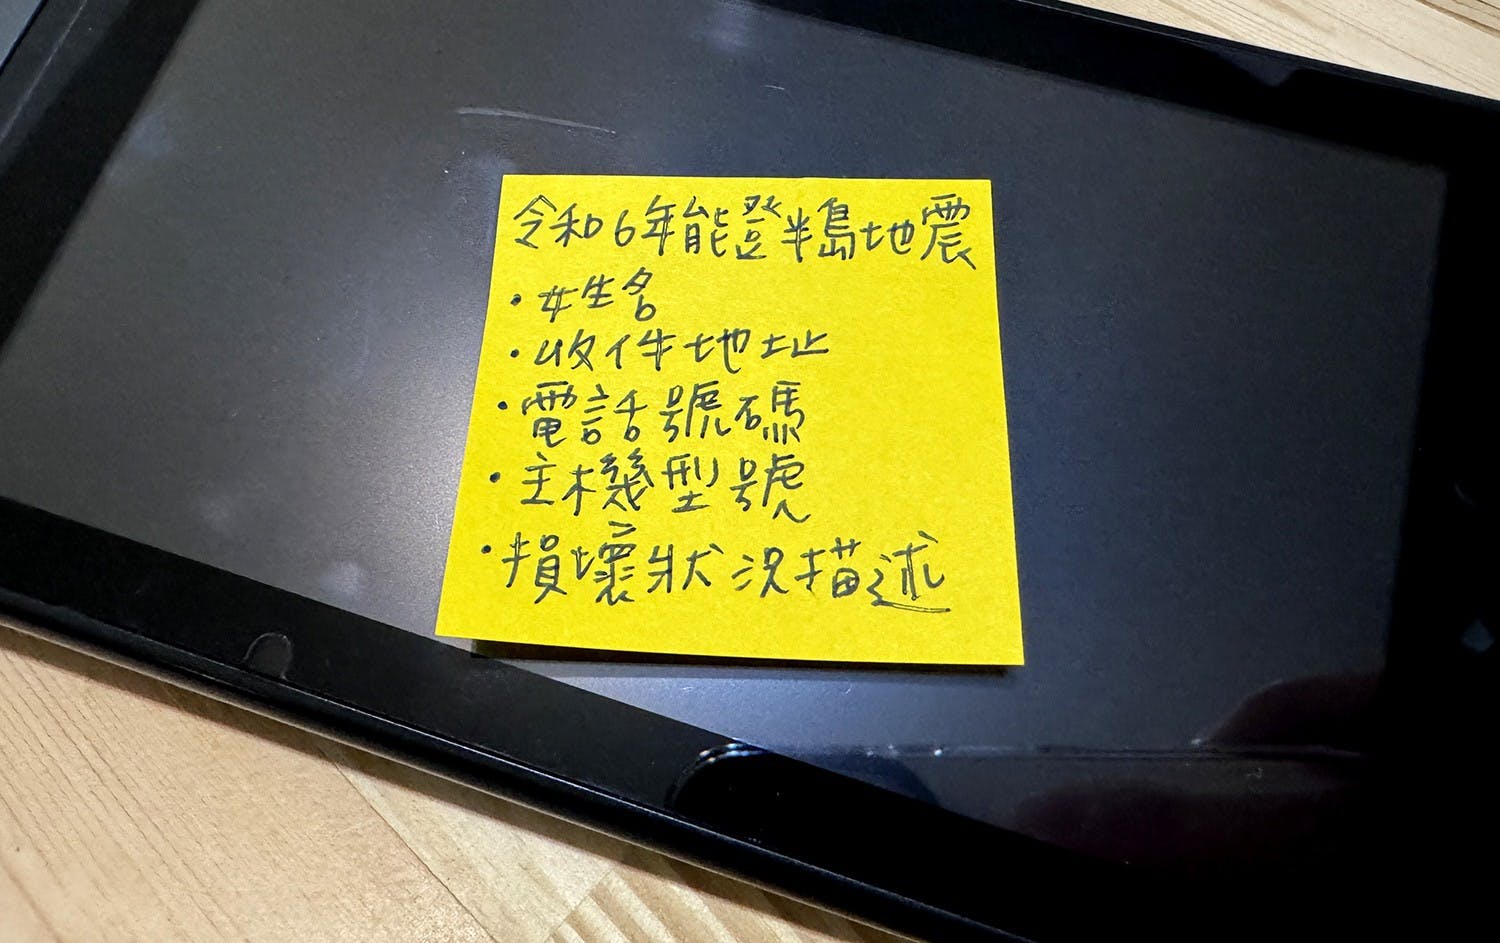 令和6年能登半島地震
・姓名
・收件地址
・電話號碼
・主機型號
・損壞狀況描述